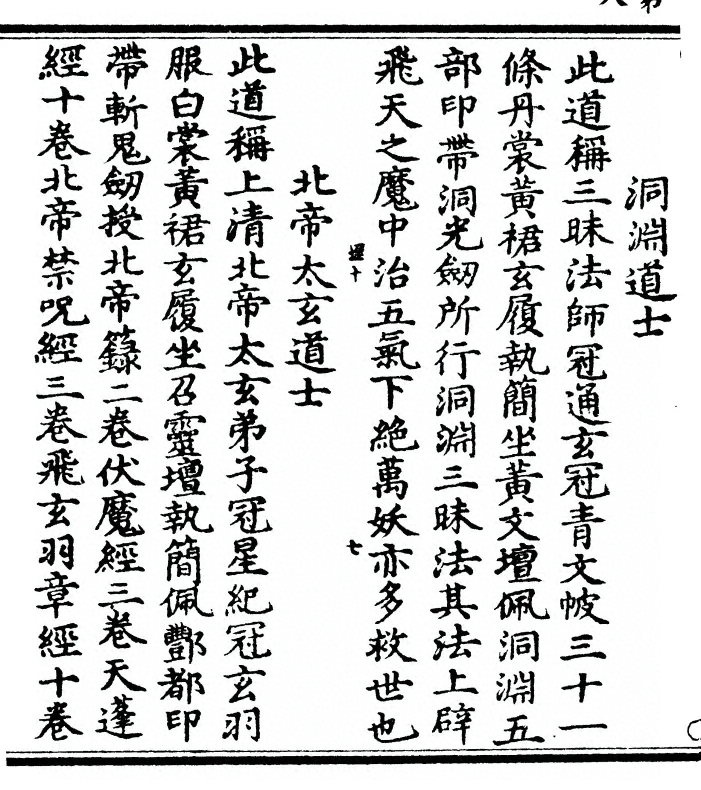 洞淵道士
此道稱三昧法師冠通玄冠青文帔三十一
條丹裳黃裙玄履執簡坐黃文壇佩洞淵五
部印帶洞光劒所行洞淵三昧法其法上辟
飛天之魔中治五氣下絕萬妖亦多救世也
壇十
七
北帝太玄道士
此道稱上清北帝太玄弟子冠星紀冠玄羽
服白裳黃裙玄履坐召靈壇執簡佩酆都印
帶斬鬼劒授北帝籙二卷伏魔經三卷天蓬
經十卷北帝禁呪經三卷飛玄羽章經十卷